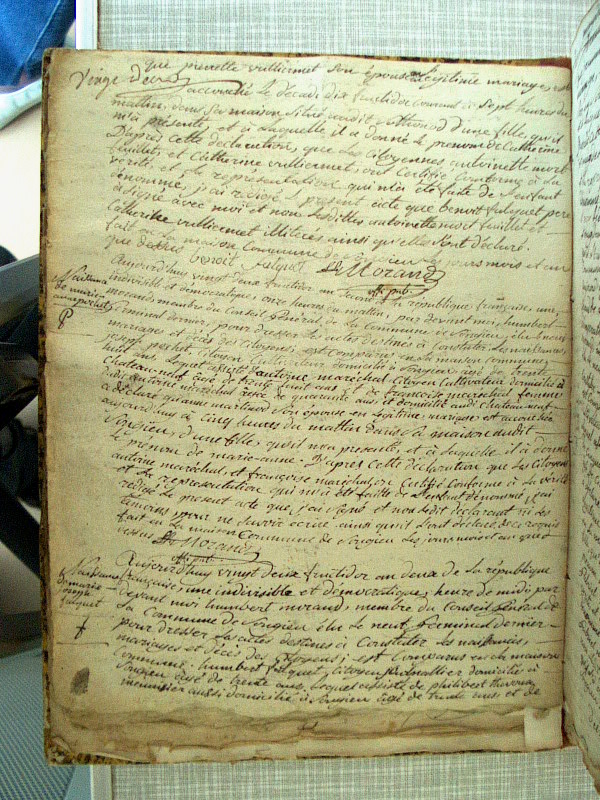 que pierrette vulliermet son épouse en legitime mariage est
Vingt deux accouchée le decadi dix fructidor courant à Sept heures du
mattin, dans sa maison située audit d'une fille, qu'il
m'a présenté et à laquelle il a donné le prenom de Catherine
D'après cette déclaration, que les Citoyennes antoinette mort
feuillet, et Catherine vulliermet, ont Certifié Conforme à la
vérité, et la représentation qui m'a été faite de l'enfant
dénommé, j'ai rédigé le présent acte que benoit falquet pere
à signé avec moi et non lesdittes antoinette mort feuillet et
Catherine vulliermet illitérés ainsi qu'elles l'ont déclaré.
fait en la maison Commune de Songieu les jours mois et an
que dessus benoit falquet Morand
off. pub.
Naissance
de marie
anne pochet
Aujourd'huy vingt deux fructidor an Second de la république française, une
indivisible et démocratique, onze heures du mattin, par devant moi, humbert
morand, membre du Conseil Général de la Commune de Songieu, élu le neuf
Germinal dernier, pour dresser les actes destinés à Constater les naissances,
mariages et décès des Citoyens, est Comparu en la maison Commune,
joseph pochet, Citoyen Cultivateur domicilié à Songieu, agé de trente
huit ans, lequel assisté d'antoine maréchal Citoyen Cultivateur domicilié à
Chateauneuf agé de trente ans, et de françoise maréchal femme
dudit antoine maréchal agée de quarante ans et domiciliée audit Chateauneuf
a déclaré qu'anne martinod son épouse en legitime mariage, est accouchée
aujourd'huy à Cinq heures du mattin dans sa maison dudit
Songieu, d'une fille, qu'il m'a présenté, et à laquelle il à donné
le prénom de marie-anne. D'après Cette déclaration que les Citoyens
antoine maréchal, et françoise maréchal, on Certifié Conforme à la vérité
et la représentation qui m'a été faitte de l'enfant dénommé, j'ai
rédigé le présent acte que j'ai signé et non ledit déclarant ni les
témoins, pour ne Savoir écrire ainsi qu'il l'ont déclaré de ce requis
fait en la maison Commune de Songieu les jours mois et an que
dessus Morand
off. pub.
Naissance
de marie
joseph
falquet
Aujourd'huy vingt deux fructidor an deux de la république
française, une indivisible et démocratique, heure de midi, par
Devant moi humbert morand, membre du Conseil Général de
la Commune de Songieu élu le neuf Germinal dernier
pour dresser les actes destinés à Constater les naissances,
mariages et décès des Citoyens, est Comparu en la maison
Commune, humbert falquet, Citoyen domicilié à
Songieu agé de trente ans, lequel assisté de philibert
meunier aussi domicilié à Songieu agé de trente ans, et de